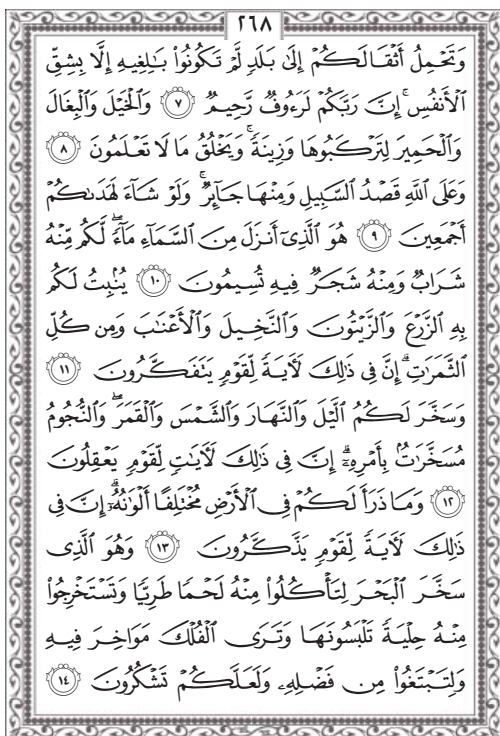 ٢٦٨
وَتَحْمِلُ أَثْقَالَكُمْ إِلَىٰ بَلَدٍ لَّمْ تَكُونُوا۟ بَٰلِغِيهِ إِلَّا بِشِقِّ
ٱلْأَنفُسِ ۚ إِنَّ رَبَّكُمْ لَرَءُوفٌ رَّحِيمٌ ٧ وَٱلْخَيْلَ وَٱلْبِغَالَ
وَٱلْحَمِيرَ لِتَرْكَبُوهَا وَزِينَةً ۚ وَيَخْلُقُ مَا لَا تَعْلَمُونَ ٨
وَعَلَى ٱللَّهِ قَصْدُ ٱلسَّبِيلِ وَمِنْهَا جَآئِرٌ ۚ وَلَوْ شَآءَ لَهَدَىٰكُمْ
أَجْمَعِينَ ٩ هُوَ ٱلَّذِىٓ أَنزَلَ مِنَ ٱلسَّمَآءِ مَآءً ۖ لَّكُم مِّنْهُ
شَرَابٌ وَمِنْهُ شَجَرٌ فِيهِ تُسِيمُونَ ١٠ يُنۢبِتُ لَكُم
بِهِ ٱلزَّرْعَ وَٱلزَّيْتُونَ وَٱلنَّخِيلَ وَٱلْأَعْنَٰبَ وَمِن كُلِّ
ٱلثَّمَرَٰتِ ۗ إِنَّ فِى ذَٰلِكَ لَءَايَةً لِّقَوْمٍ يَتَفَكَّرُونَ ١١
وَسَخَّرَ لَكُمُ ٱلَّيْلَ وَٱلنَّهَارَ وَٱلشَّمْسَ وَٱلْقَمَرَ ۖ وَٱلنُّجُومُ
مُسَخَّرَٰتٌۢ بِأَمْرِهِۦٓ ۗ إِنَّ فِى ذَٰلِكَ لَءَايَٰتٍ لِّقَوْمٍ يَعْقِلُونَ
١٢ وَمَا ذَرَأَ لَكُمْ فِى ٱلْأَرْضِ مُخْتَلِفًا أَلْوَٰنُهُۥٓ ۗ إِنَّ فِى
ذَٰلِكَ لَءَايَةً لِّقَوْمٍ يَذَّكَّرُونَ ١٣ وَهُوَ ٱلَّذِى
سَخَّرَ ٱلْبَحْرَ لِتَأْكُلُوا۟ مِنْهُ لَحْمًا طَرِيًّا وَتَسْتَخْرِجُوا۟
مِنْهُ حِلْيَةً تَلْبَسُونَهَا وَتَرَى ٱلْفُلْكَ مَوَاخِرَ فِيهِ
وَلِتَبْتَغُوا۟ مِن فَضْلِهِۦ وَلَعَلَّكُمْ تَشْكُرُونَ ١٤